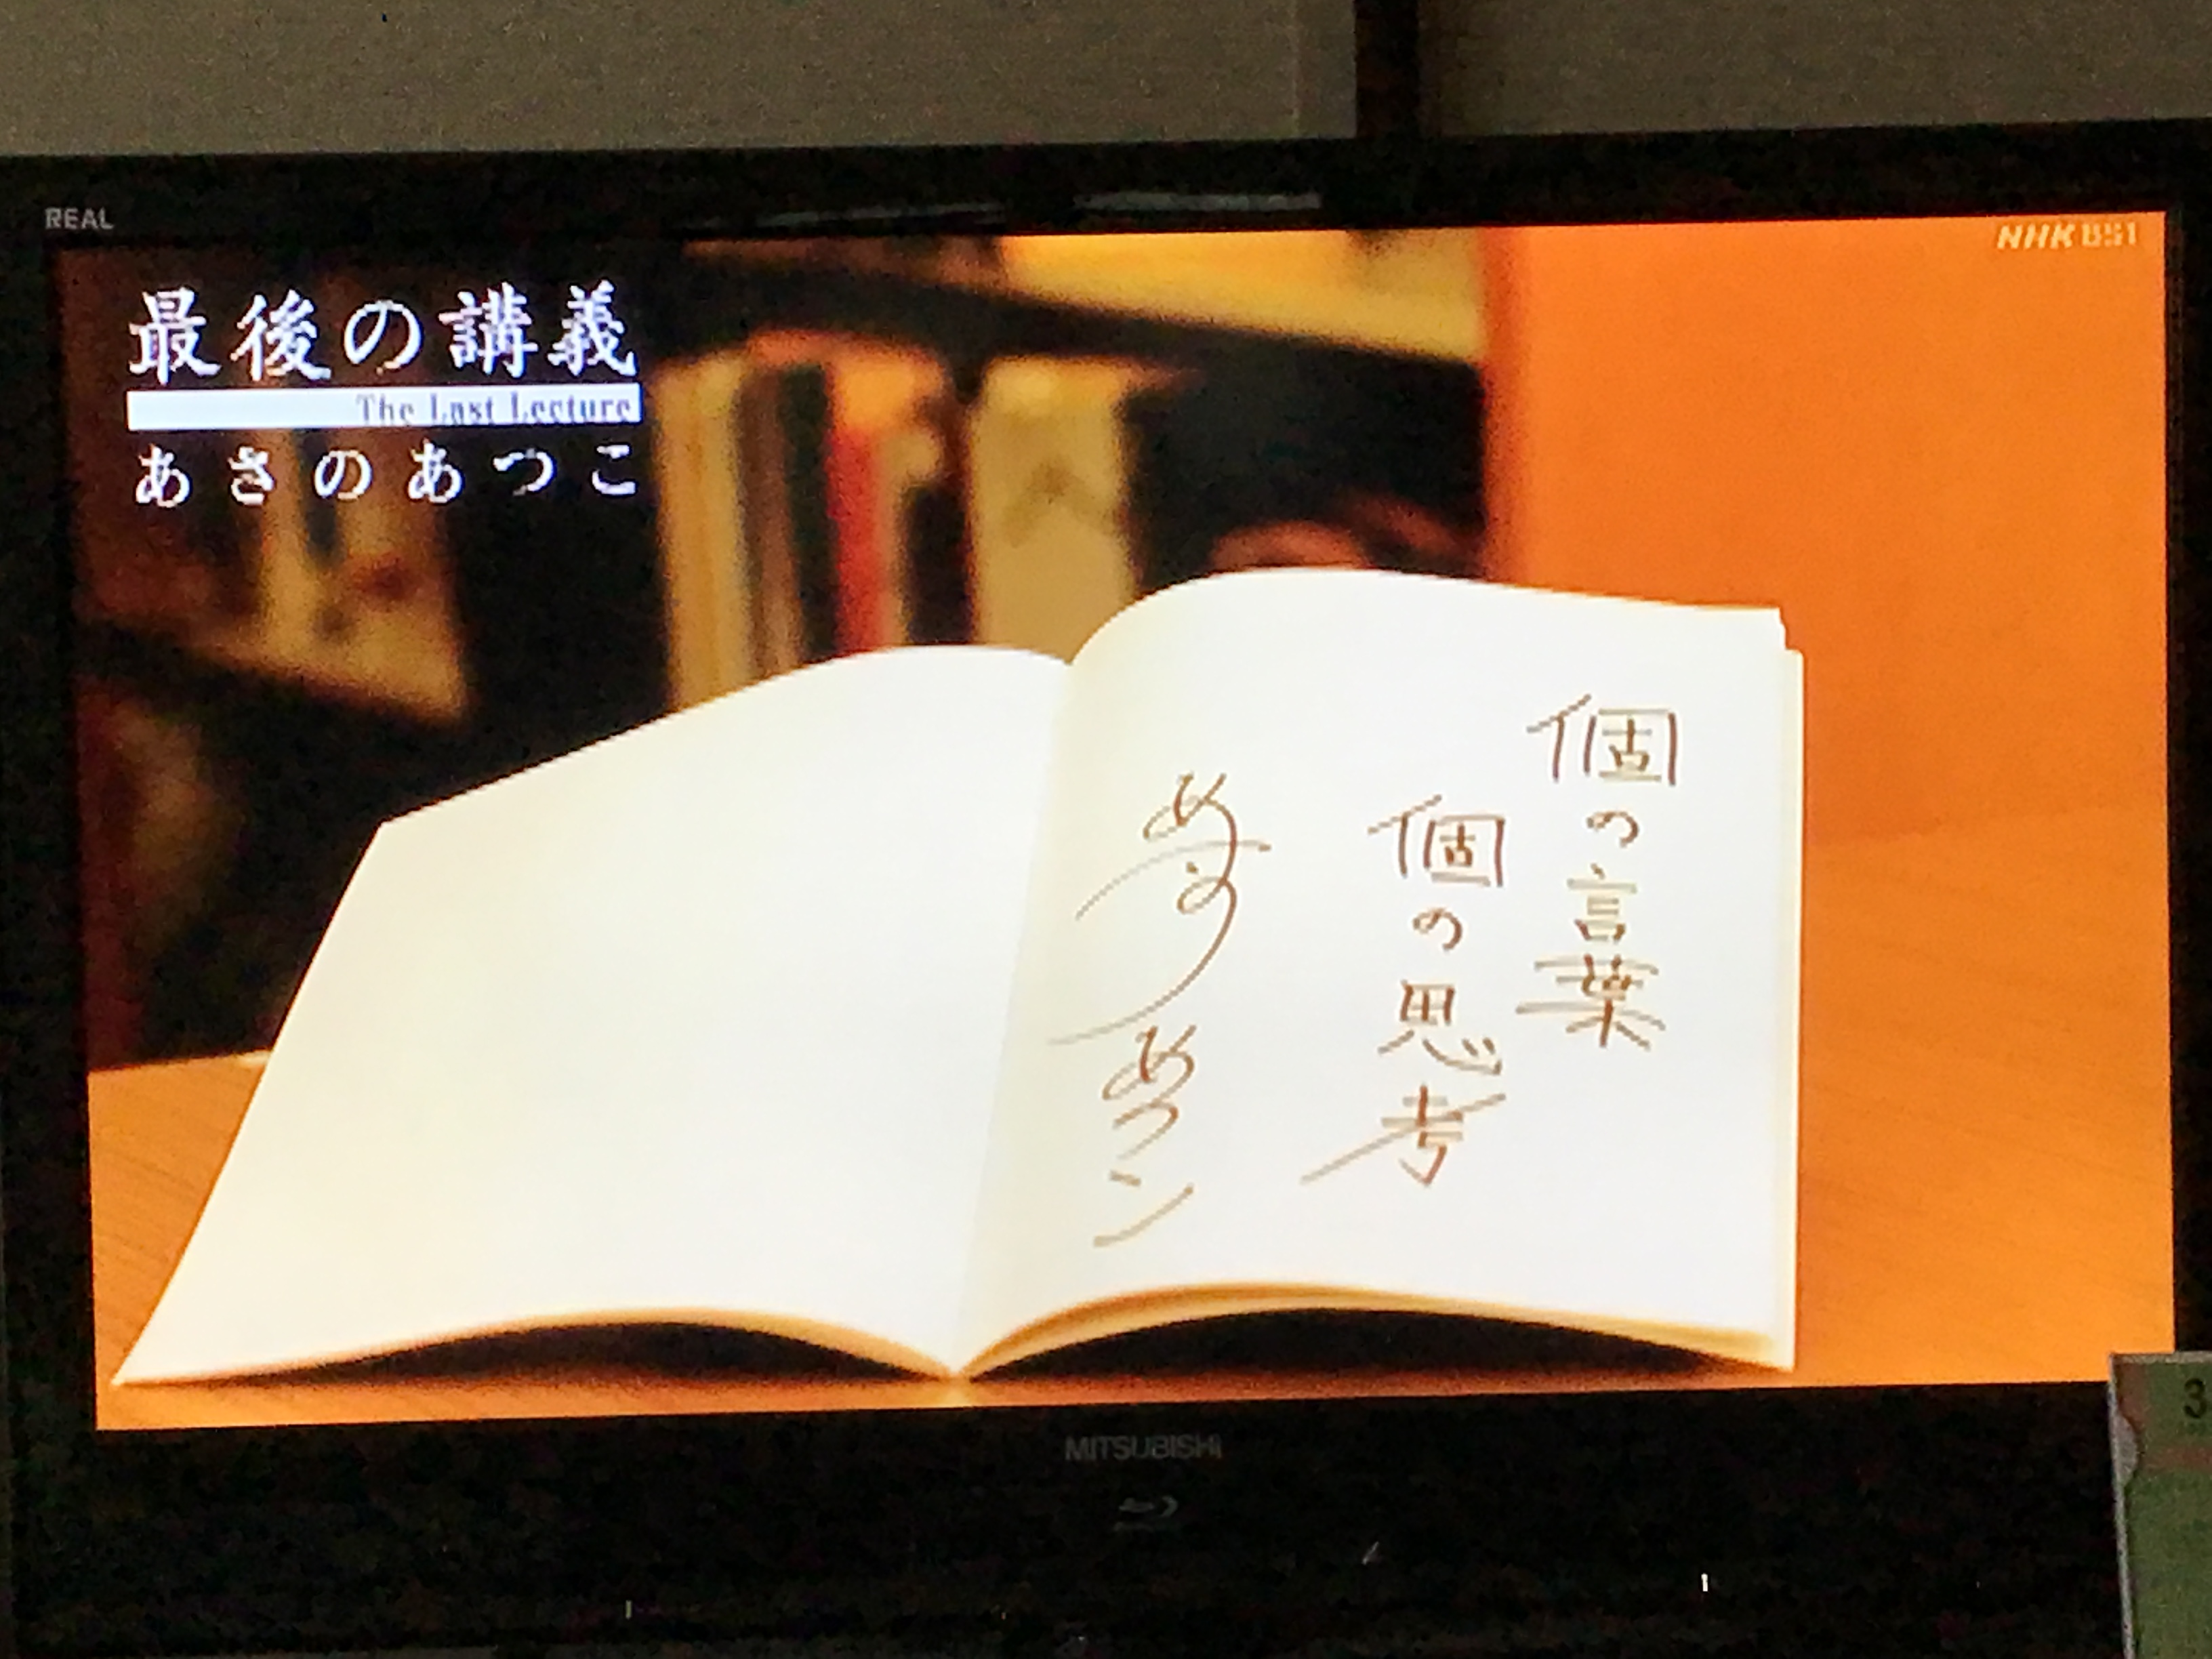 REAL
NHK BS1
最後の講義
The Last Lecture
あさのあつこ
個の言葉
個の思考
あさのあつこ
MITSUBISHI
3